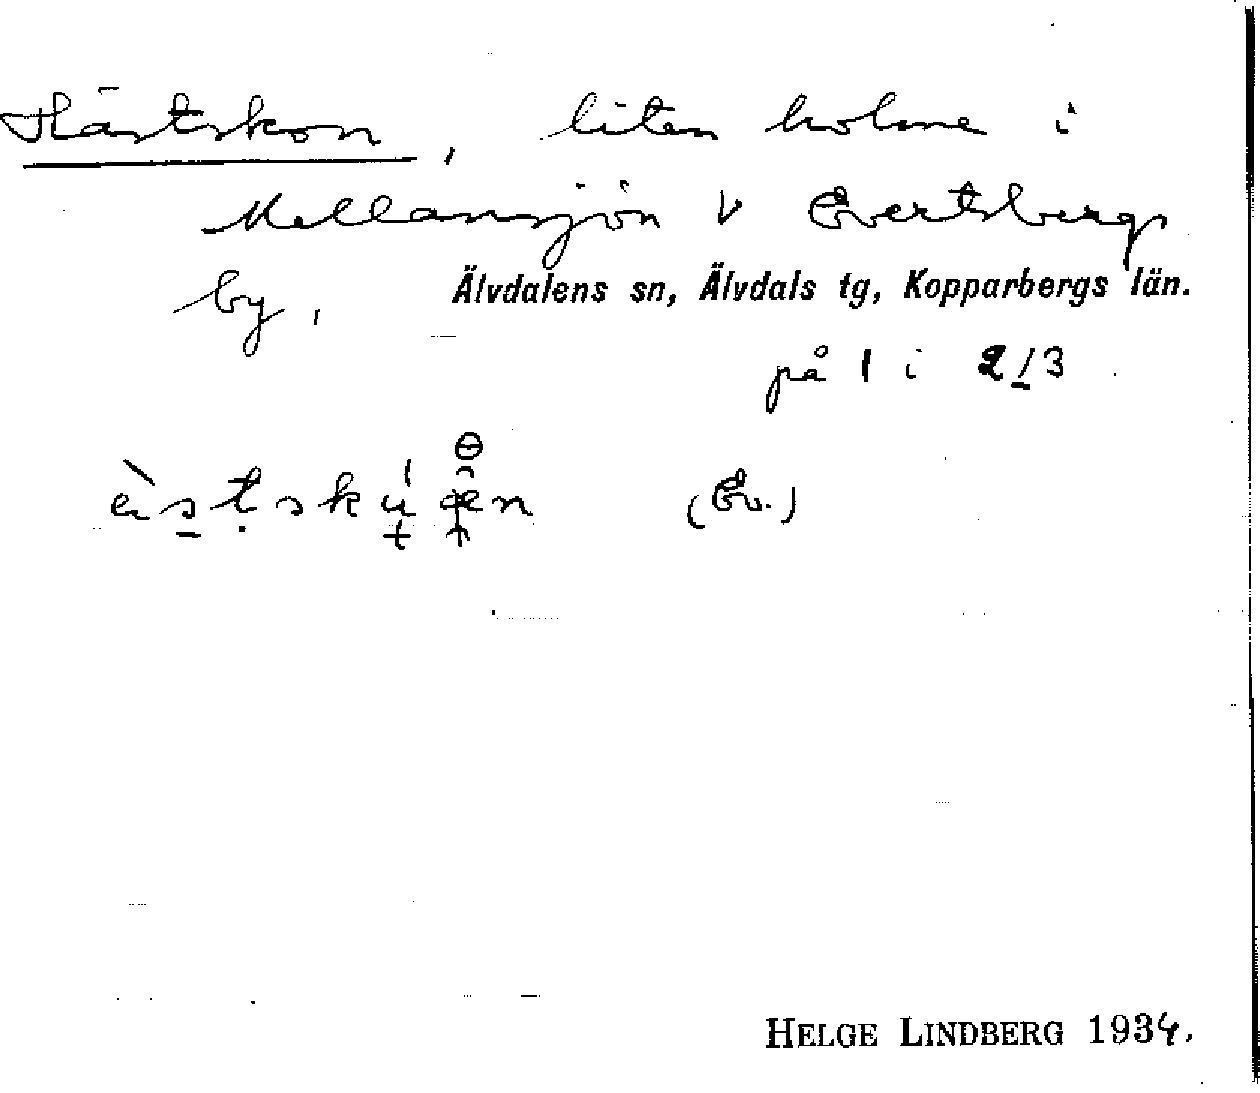 Hästskon, liten holme i
Mellansjön V Evertsbergs
by, Älvdalens sn, Älvdals tg, Kopparbergs län.
på 1 i 2/3
(Ev.)
HELGE LINDBERG 1934.